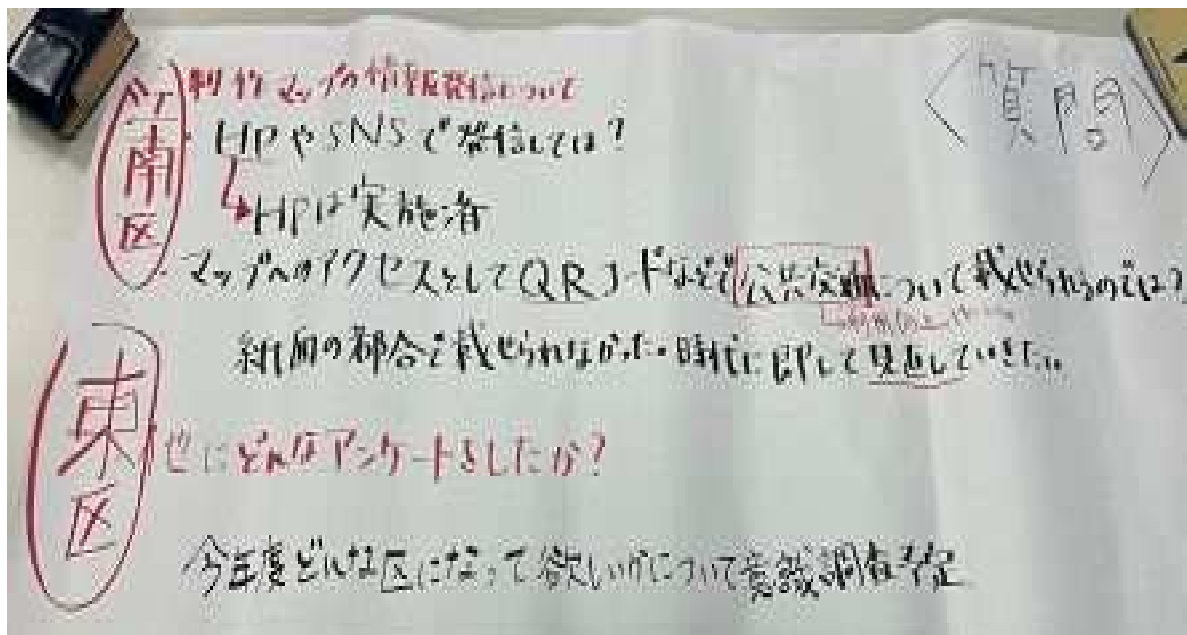 〈質問〉
南区
マップの情報発信について
HPやSNSで発信しては?
↳HPは実施済
・マップへのアクセスとしてQRコードなどで公共交通について載せられるのでは?
紙面の都合で載せられなかった。時代に即して見直していきたい。
東区
他にどんなアンケートをしたか?
今年度どんな区になって欲しいかについて意識調査予定